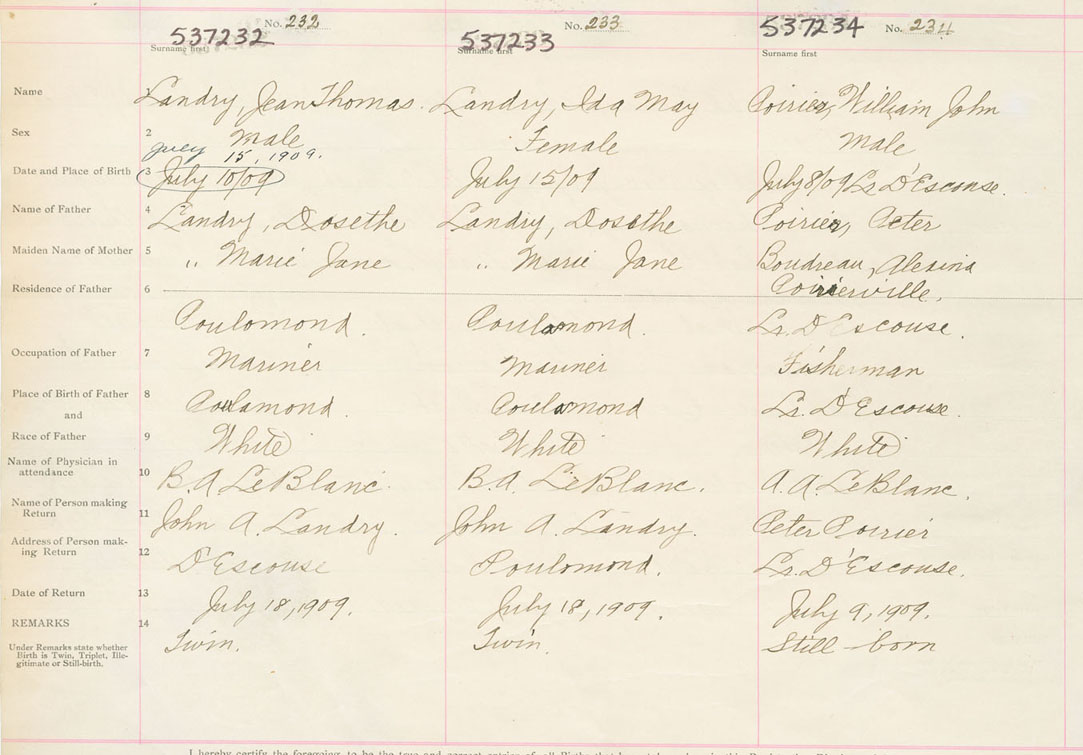 No. 232 No. 233 No. 234
537232 537233 537234
Surname first) Surname first Surname first
Name 1 Landry, Jean Thomas. Landry, Ida May Poirier, William John
Sex 2 Male Female Male
July 15, 1909.
Date and Place of Birth 3 July 10/09 July 15/09 July 8/09 Lr. D'Escouse.
Name of Father 4 Landry, Dosethe Landry, Dosethe Poirier, Peter
Maiden Name of Mother 5 " Marie Jane " Marie Jane Boudreau, Alexina
Residence of Father 6 Poirierville.
Poulomond. Poulamond. Lr. D'Escouse.
Occupation of Father 7 Mariner Mariner Fisherman
Place of Birth of Father 8 Poulamond. Poulamond Lr. D'Escouse.
and
Race of Father 9 White White White
Name of Physician in
attendance 10 B. A LeBlanc. B. A. LeBlanc. A. A. LeBlanc.
Name of Person making
Return 11 John A. Landry. John A. Landry. Peter Poirier
Address of Person mak-
ing Return 12 D'Escouse Poulomond. Lr. D'Escouse.
Date of Return 13 July 18, 1909. July 18, 1909. July 9, 1909.
REMARKS 14 Twin. Twin. Still-born
Under Remarks state whether
Birth is Twin, Triplet, Ille-
gitimate or Still-birth.
I hereby certify the foregoing to be the true and correct entries of all Births that